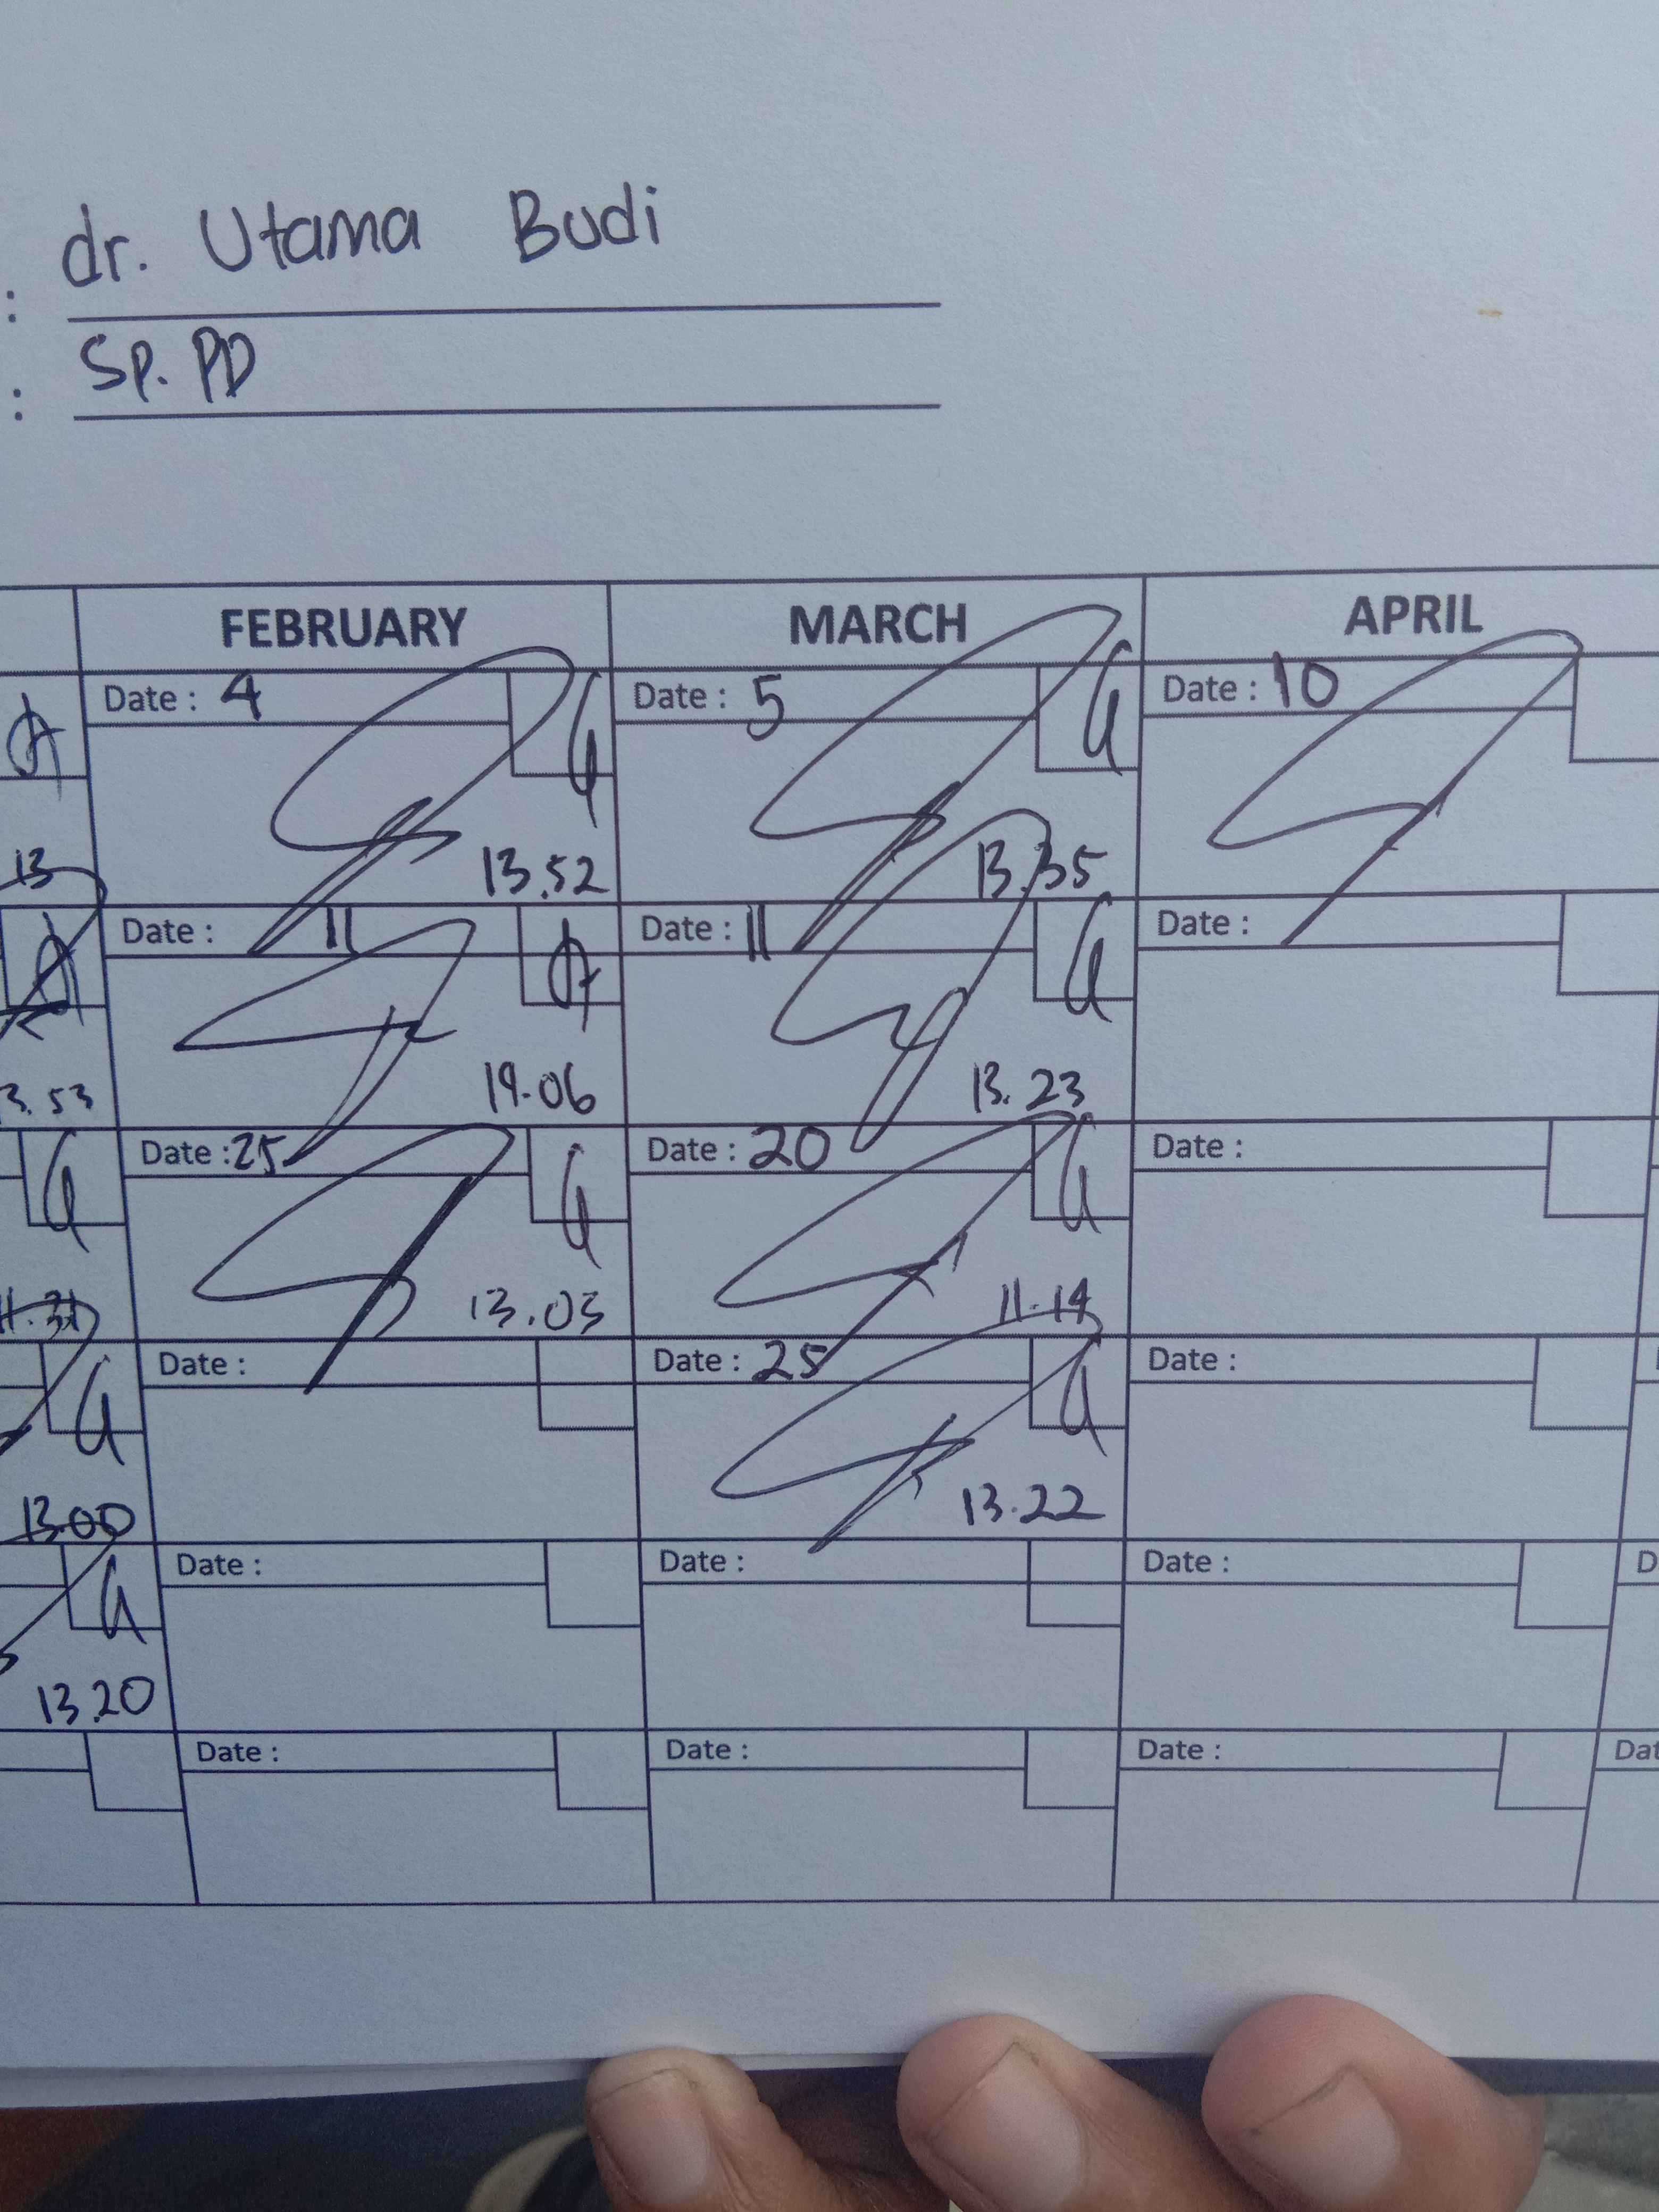 : dr. Utama Budi
: Sp. PD
FEBRUARY MARCH APRIL
Date : 4 Date : 5 Date : 10
13 13.52 13.35
Date : 11 Date : 11 Date :
3.53 19.06 13.23
Date : 25 Date : 20 Date :
11.31 13.03 11.19
Date : Date : 25 Date :
13.00 13.22
Date : Date : Date : D
13.20
Date : Date : Date : Dat